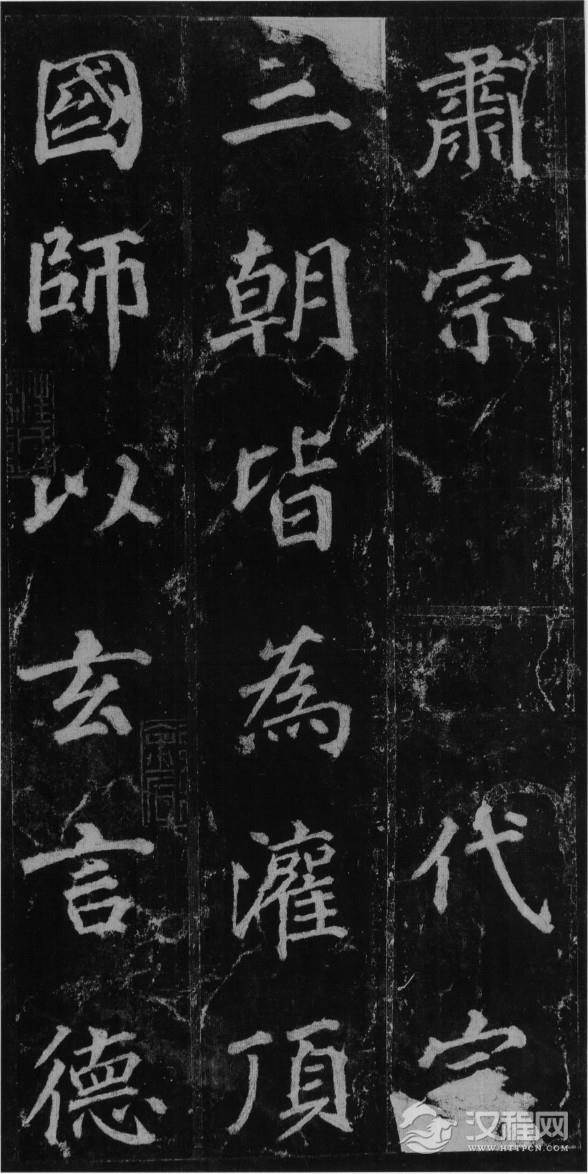 肅宗代宗
三朝皆為灌頂
國師以玄言德
汉程网
WWW.HTTPCN.COM